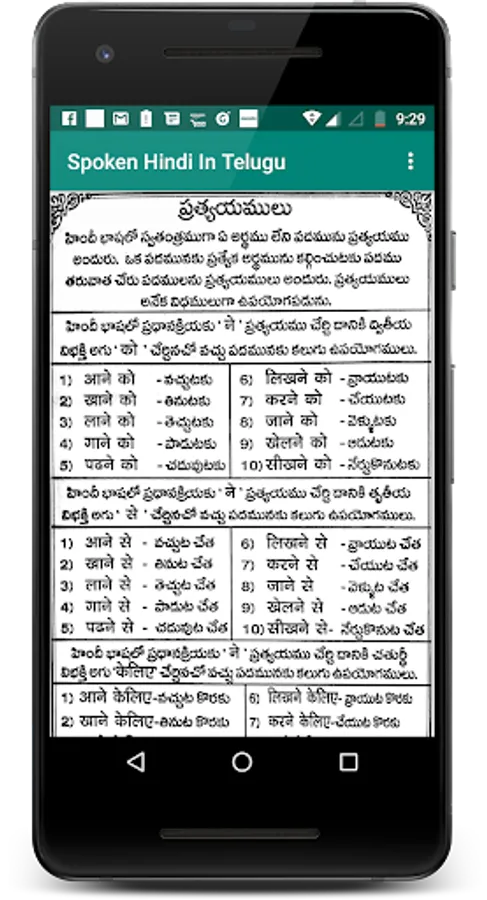 9:29
Spoken Hindi In Telugu
ప్రత్యయములు
హిందీ భాషలో స్వతంత్రముగా ఏ అర్థము లేని పదమును ప్రత్యయము
అందురు. ఒక పదమునకు ప్రత్యేక అర్థమును కల్గించుటకు పదము
తరువాత చేరు పదములను ప్రత్యయములు అందురు. ప్రత్యయములు
అనేక విధములుగా ఉపయోగపడును.
హిందీ భాషలో ప్రధానక్రియకు ' ने ' ప్రత్యయము చేర్చి దానికి ద్వితీయ
విభక్తి అగు 'को' చేర్చినచో వచ్చు పదమునకు కలుగు ఉపయోగములు.
1) आने को - వచ్చుటకు
2) खाने को - తినుటకు
3) लाने को - తెచ్చుటకు
4) गाने को - పాడుటకు
5) पढने को - చదువుటకు
6) लिखने को - వ్రాయుటకు
7) करने को - చేయుటకు
8) जाने को - వెళ్ళుటకు
9) खेलने को - ఆడుటకు
10) सीखने को - నేర్చుకొనుటకు
హిందీ భాషలో ప్రధానక్రియకు ' ने ' ప్రత్యయము చేర్చి దానికి తృతీయ
విభక్తి అగు ' से ' చేర్చినచో వచ్చు పదమునకు కలుగు ఉపయోగములు.
1) आने से - వచ్చుట చేత
2) खाने से - తినుట చేత
3) लाने से - తెచ్చుట చేత
4) गाने से - పాడుట చేత
5) पढने से - చదువుట చేత
6) लिखने से - వ్రాయుట చేత
7) करने से - చేయుట చేత
8) जाने से - వెళ్ళుట చేత
9) खेलने से - ఆడుట చేత
10) सीखने से - నేర్చుకొనుట చేత
హిందీ భాషలో ప్రధానక్రియకు ' ने ' ప్రత్యయము చేర్చి దానికి చతుర్థీ
విభక్తి అగు 'केलिए' చేర్చినచో వచ్చు పదమునకు కలుగు ఉపయోగములు.
1) आने केलिए-వచ్చుట కొరకు
2) खाने केलिए-తినుట కొరకు
6) लिखने केलिए- వ్రాయుట కొరకు
7) करने केलिए-చేయుట కొరకు